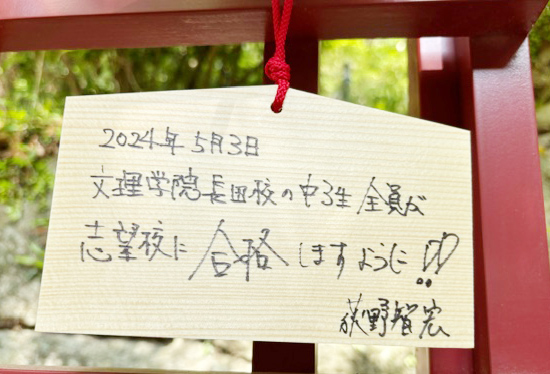 2024年5月3日
文理学院長田校の中3生全員が
志望校に合格しますように!!
荻野智宏